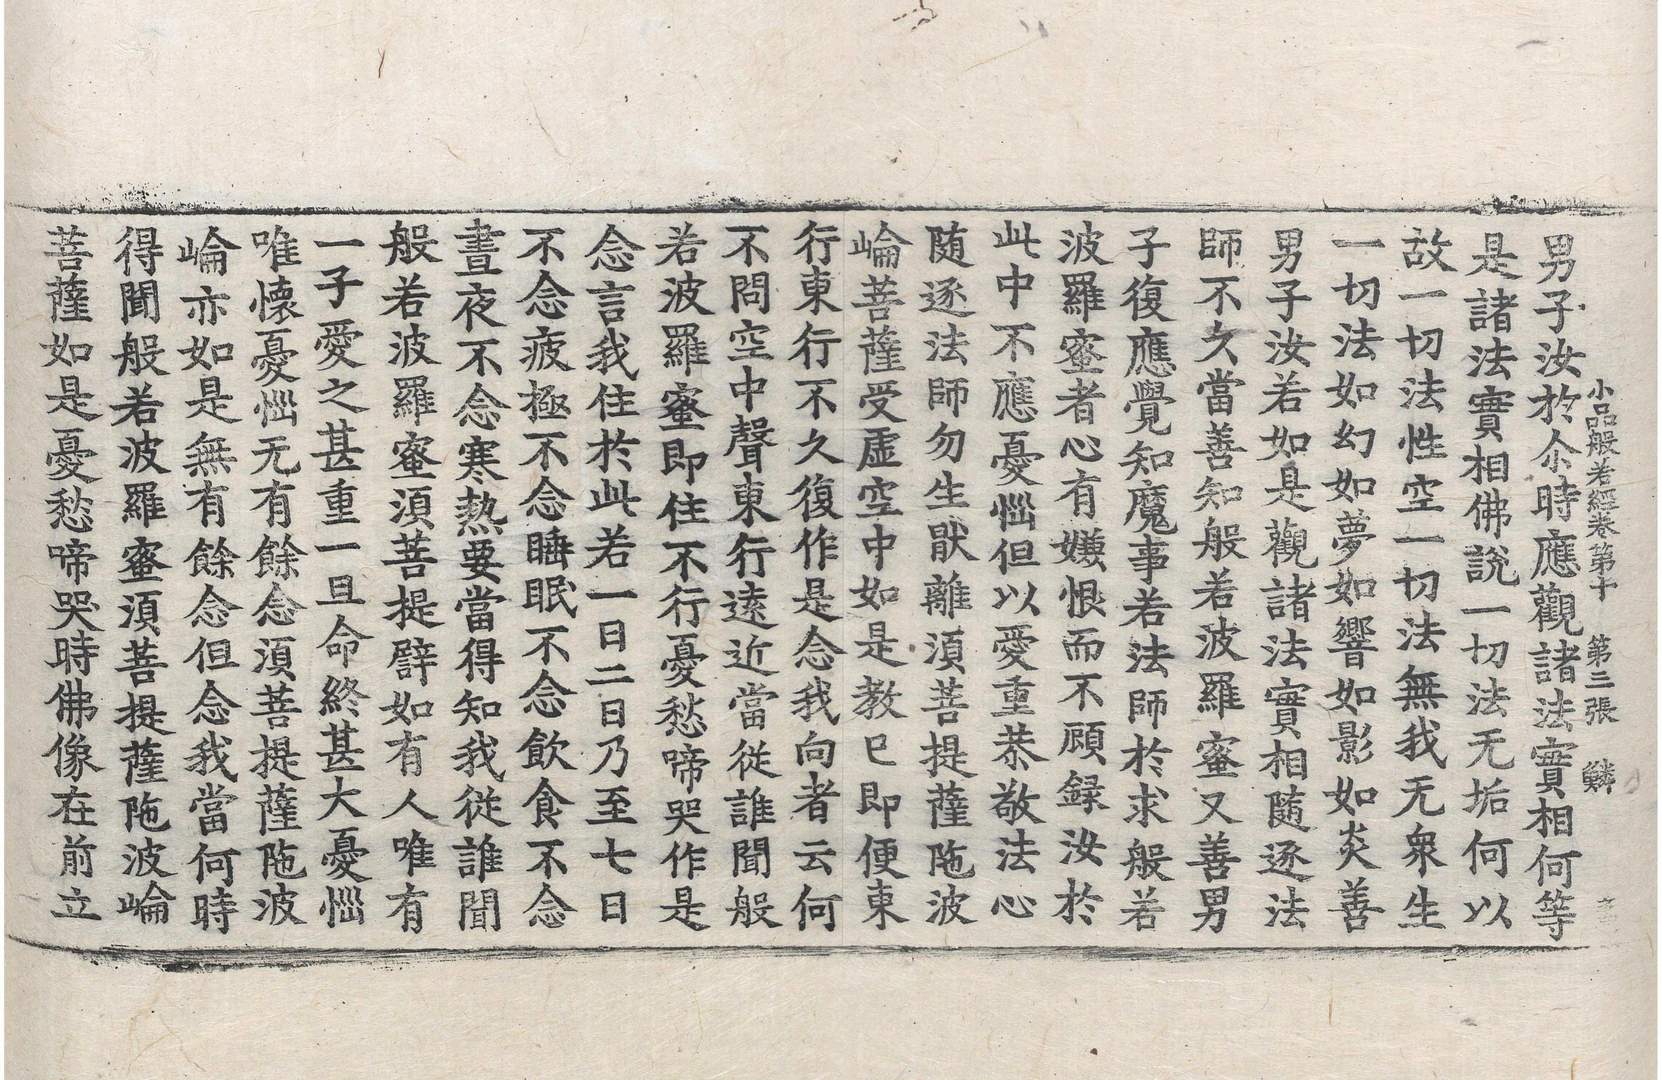 小品般若經卷第十 第三張 鱗
男子汝於尒時應觀諸法實相何等
是諸法實相佛說一切法无垢何以
故一切法性空一切法無我无衆生
一切法如幻如夢如響如影如炎善
男子汝若如是觀諸法實相随逐法
師不久當善知般若波羅蜜又善男
子復應覺知魔事若法師於求般若
波羅蜜者心有嫌恨而不顧錄汝於
此中不應憂惱但以愛重恭敬法心
随逐法師勿生猒離湏菩提薩陁波
崘菩薩受虛空中如是教已即便東
行東行不久復作是念我向者云何
不問空中聲東行遠近當從誰聞般
若波羅蜜即住不行憂愁啼哭作是
念言我住於此若一日二日乃至七日
不念疲極不念睡眠不念飲食不念
晝夜不念寒熱要當得知我從誰聞
般若波羅蜜湏菩提譬如有人唯有
一子愛之甚重一旦命終甚大憂惱
唯懷憂惱无有餘念湏菩提薩陁波
崘亦如是無有餘念但念我當何時
得聞般若波羅蜜湏菩提薩陁波崘
菩薩如是憂愁啼哭時佛像在前立